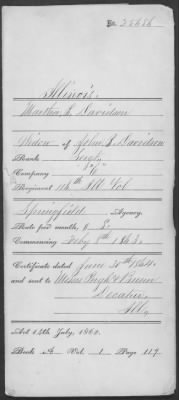 No. 25686
Illinois
Martha P. Davidson
Widow of John P. Davidson
Rank Sergt
Company "C"
Regiment 116th Ill Vol
Springfield Agency.
Rate per month, $ 8.
Commencing Feby 1863.
Certificate dated June 30th 1864.
and sent to Messrs Pugh & Brown
Decatur
Ill,
Act 14th July, 1862.
Book A Vol. 1 Page 119.